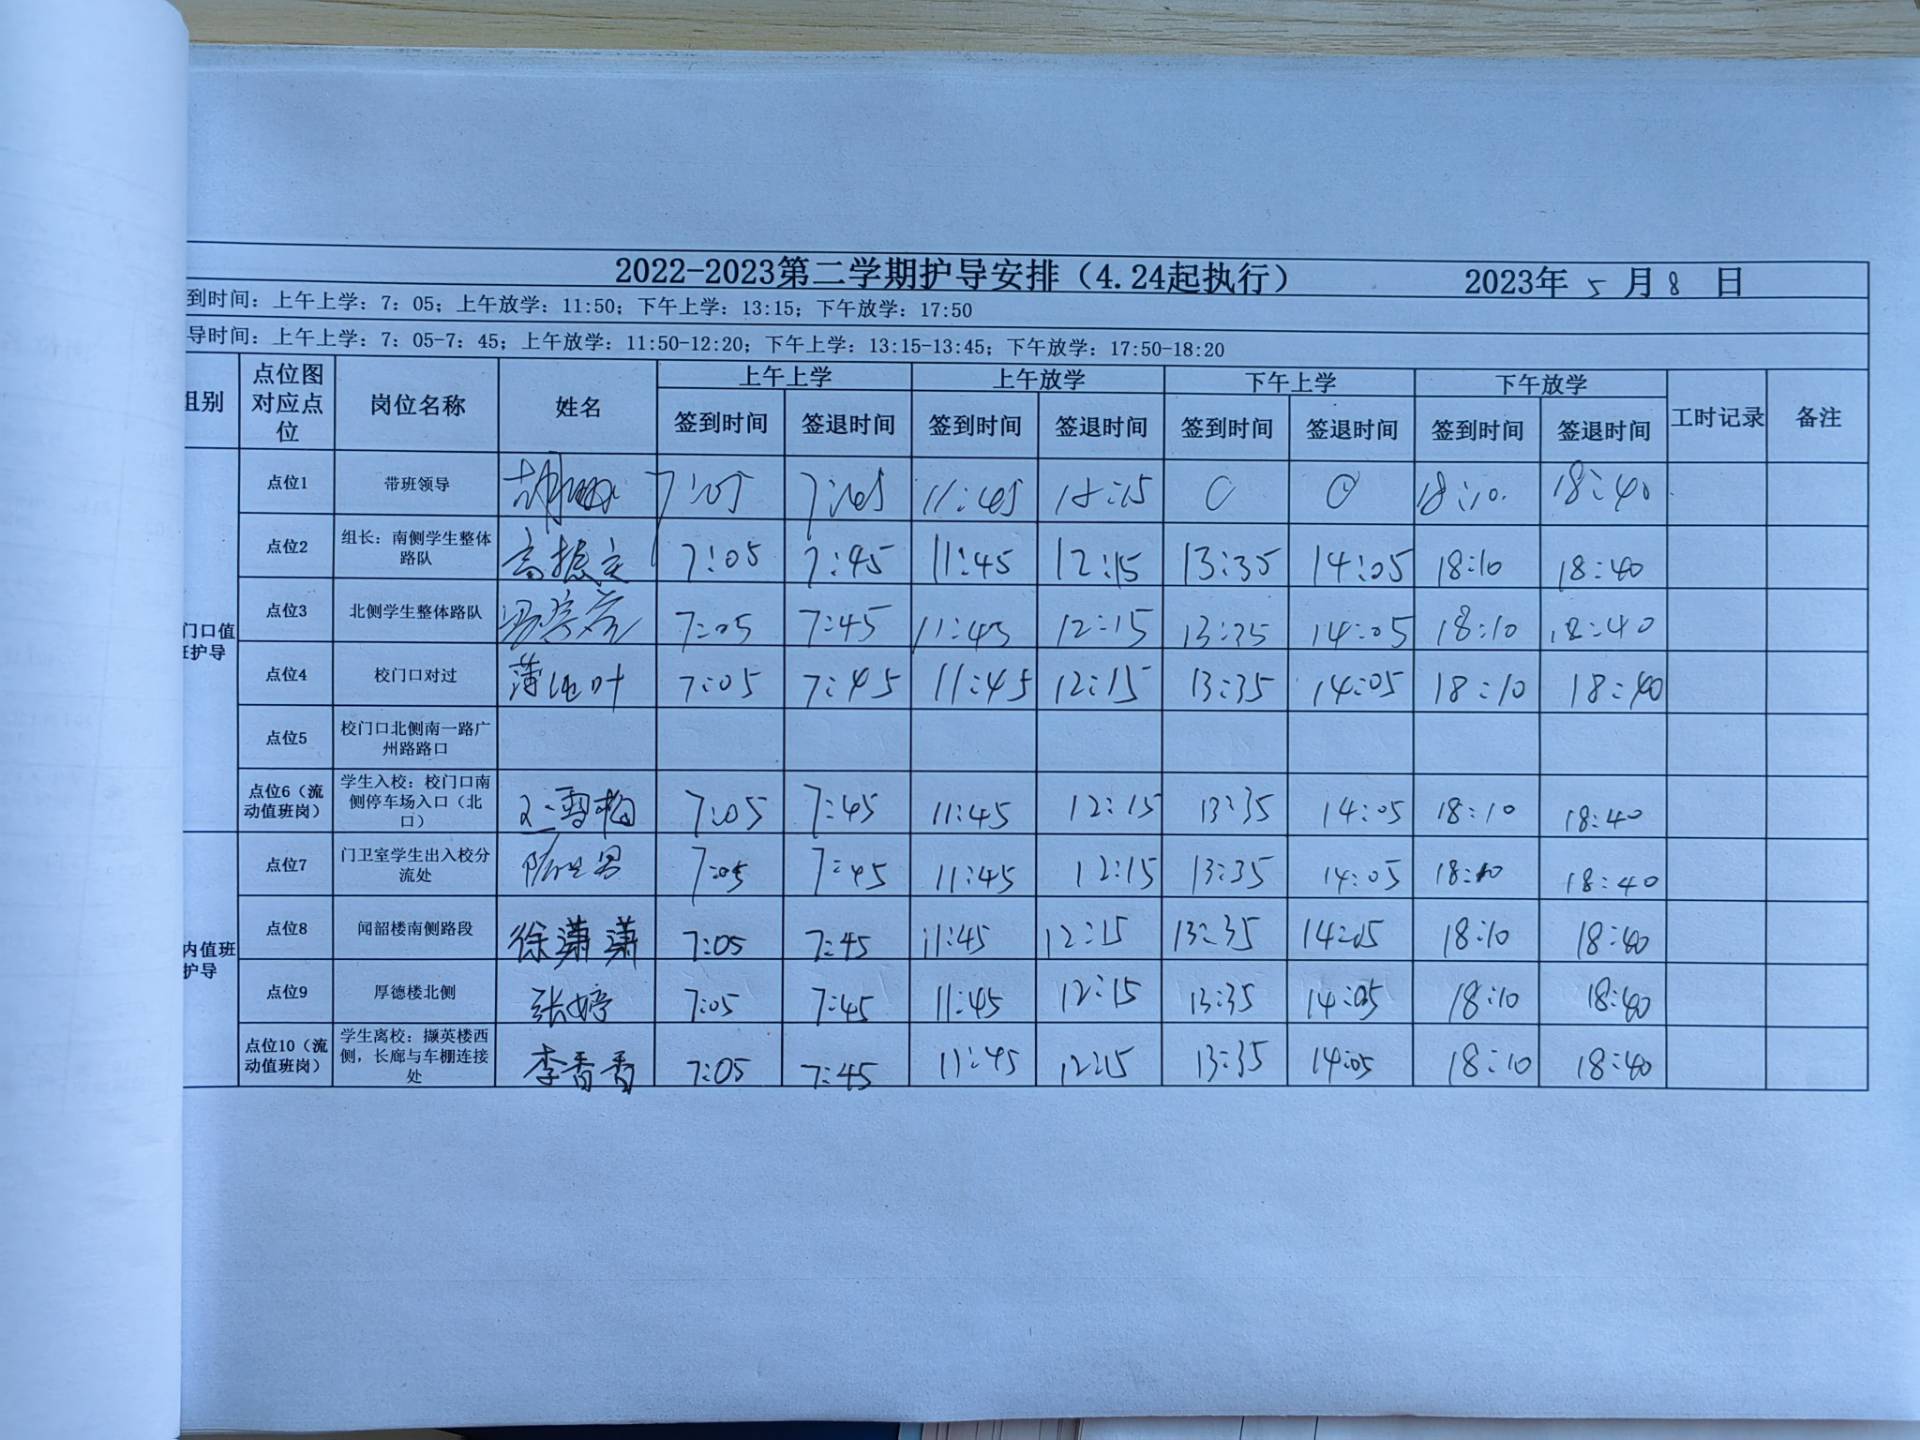 2022-2023第二学期护导安排（4.24起执行） 2023年 5 月 8 日
到时间：上午上学：7：05；上午放学：11:50；下午上学：13:15；下午放学：17:50
导时间：上午上学：7：05-7：45；上午放学：11:50-12:20；下午上学：13:15-13:45；下午放学：17:50-18:20
组别 点位图对应点位 岗位名称 姓名 上午上学 上午放学 下午上学 下午放学 工时记录 备注
签到时间 签退时间 签到时间 签退时间 签到时间 签退时间 签到时间 签退时间
门口值
护导
点位1 带班领导 7:05 7:45 11:45 12:15 0 0 18:10 18:40
点位2 组长：南侧学生整体路队 高振 7:05 7:45 11:45 12:15 13:35 14:05 18:10 18:40
点位3 北侧学生整体路队 7:05 7:45 11:45 12:15 13:35 14:05 18:10 18:40
点位4 校门口对过 叶 7:05 7:45 11:45 12:15 13:35 14:05 18:10 18:40
点位5 校门口北侧南一路广州路路口
点位6（流动值班岗） 学生入校：校门口南侧停车场入口（北口） 雪梅 7:05 7:45 11:45 12:15 13:35 14:05 18:10 18:40
内值班
护导
点位7 门卫室学生出入校分流处 7:05 7:45 11:45 12:15 13:35 14:05 18:10 18:40
点位8 闻韶楼南侧路段 徐潇潇 7:05 7:45 11:45 12:15 13:35 14:05 18:10 18:40
点位9 厚德楼北侧 张婷 7:05 7:45 11:45 12:15 13:35 14:05 18:10 18:40
点位10（流动值班岗） 学生离校：撷英楼西侧，长廊与车棚连接处 李香香 7:05 7:45 11:45 12:15 13:35 14:05 18:10 18:40